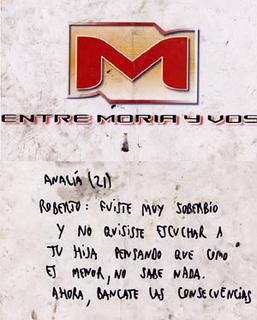 M
ENTRE MORIA Y VOS
ANALÍA (21)
ROBERTO: FUISTE MUY SOBERBIO
Y NO QUISISTE ESCUCHAR A
TU HIJA PENSANDO QUE COMO
ES MENOR, NO SABE NADA.
AHORA, BANCATE LAS CONSECUENCIAS